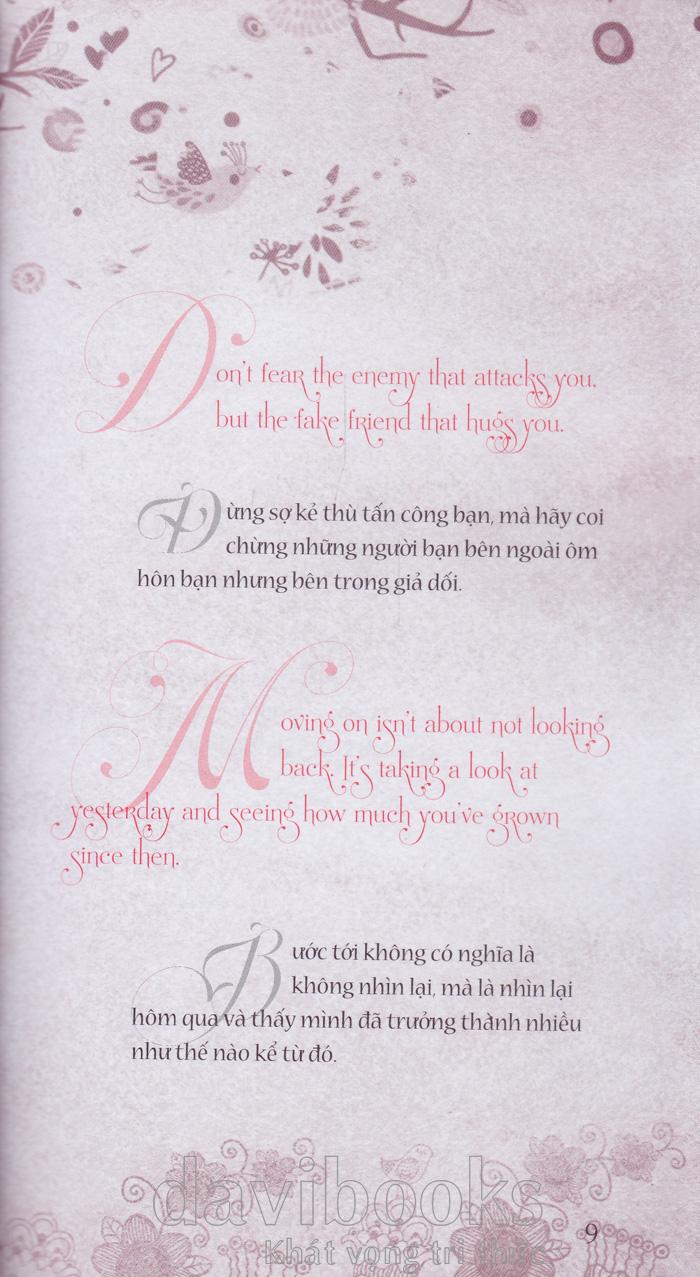 Don't fear the enemy that attacks you,
but the fake friend that hugs you.
Đừng sợ kẻ thù tấn công bạn, mà hãy coi
chừng những người bạn bên ngoài ôm
hôn bạn nhưng bên trong giả dối.
Moving on isn't about not looking
back. It's taking a look at
yesterday and seeing how much you've grown
since then.
Bước tới không có nghĩa là
không nhìn lại, mà là nhìn lại
hôm qua và thấy mình đã trưởng thành nhiều
như thế nào kể từ đó.
davibooks
9
khát vọng tri thức